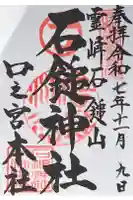 奉拝 令和七年十一月九日
霊峰石鎚山
石鎚神社
口之宮本社